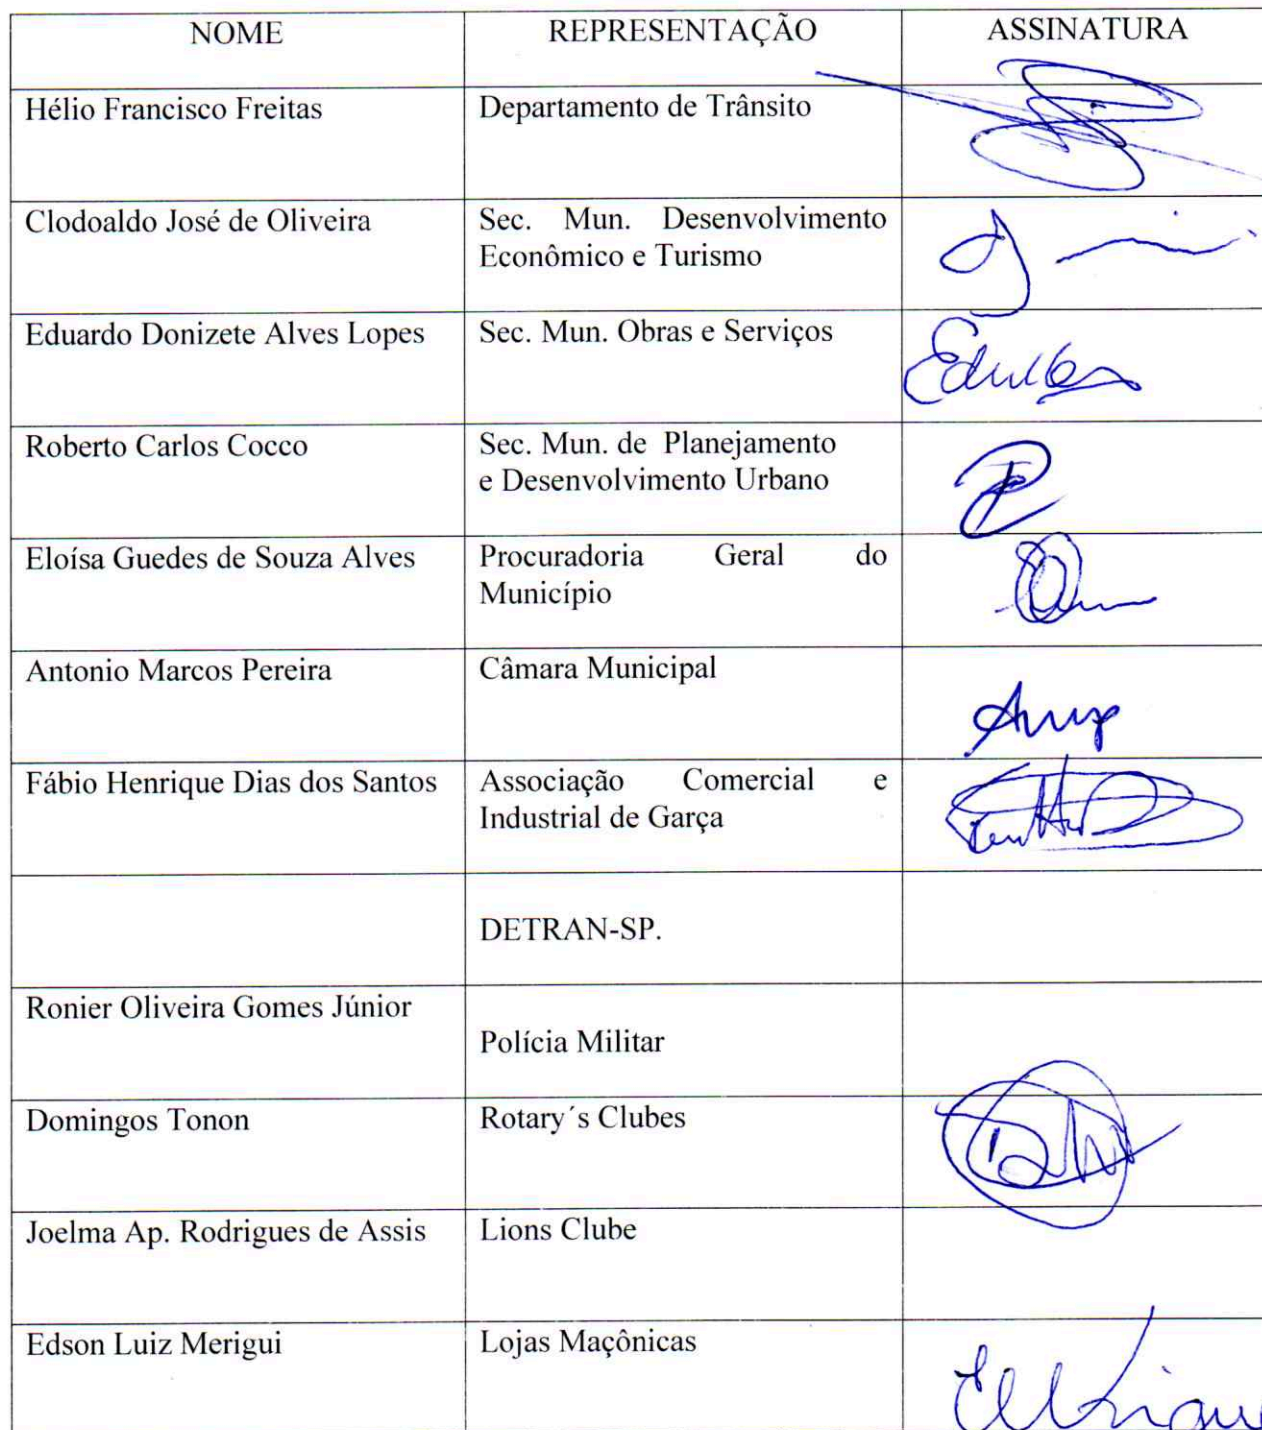 NOME REPRESENTAÇÃO ASSINATURA
Hélio Francisco Freitas Departamento de Trânsito
Clodoaldo José de Oliveira Sec. Mun. Desenvolvimento
Econômico e Turismo
Eduardo Donizete Alves Lopes Sec. Mun. Obras e Serviços
Roberto Carlos Cocco Sec. Mun. de Planejamento
e Desenvolvimento Urbano
Eloísa Guedes de Souza Alves Procuradoria Geral do
Município
Antonio Marcos Pereira Câmara Municipal
Fábio Henrique Dias dos Santos Associação Comercial e
Industrial de Garça
DETRAN-SP.
Ronier Oliveira Gomes Júnior
Polícia Militar
Domingos Tonon Rotary´s Clubes
Joelma Ap. Rodrigues de Assis Lions Clube
Edson Luiz Merigui Lojas Maçônicas